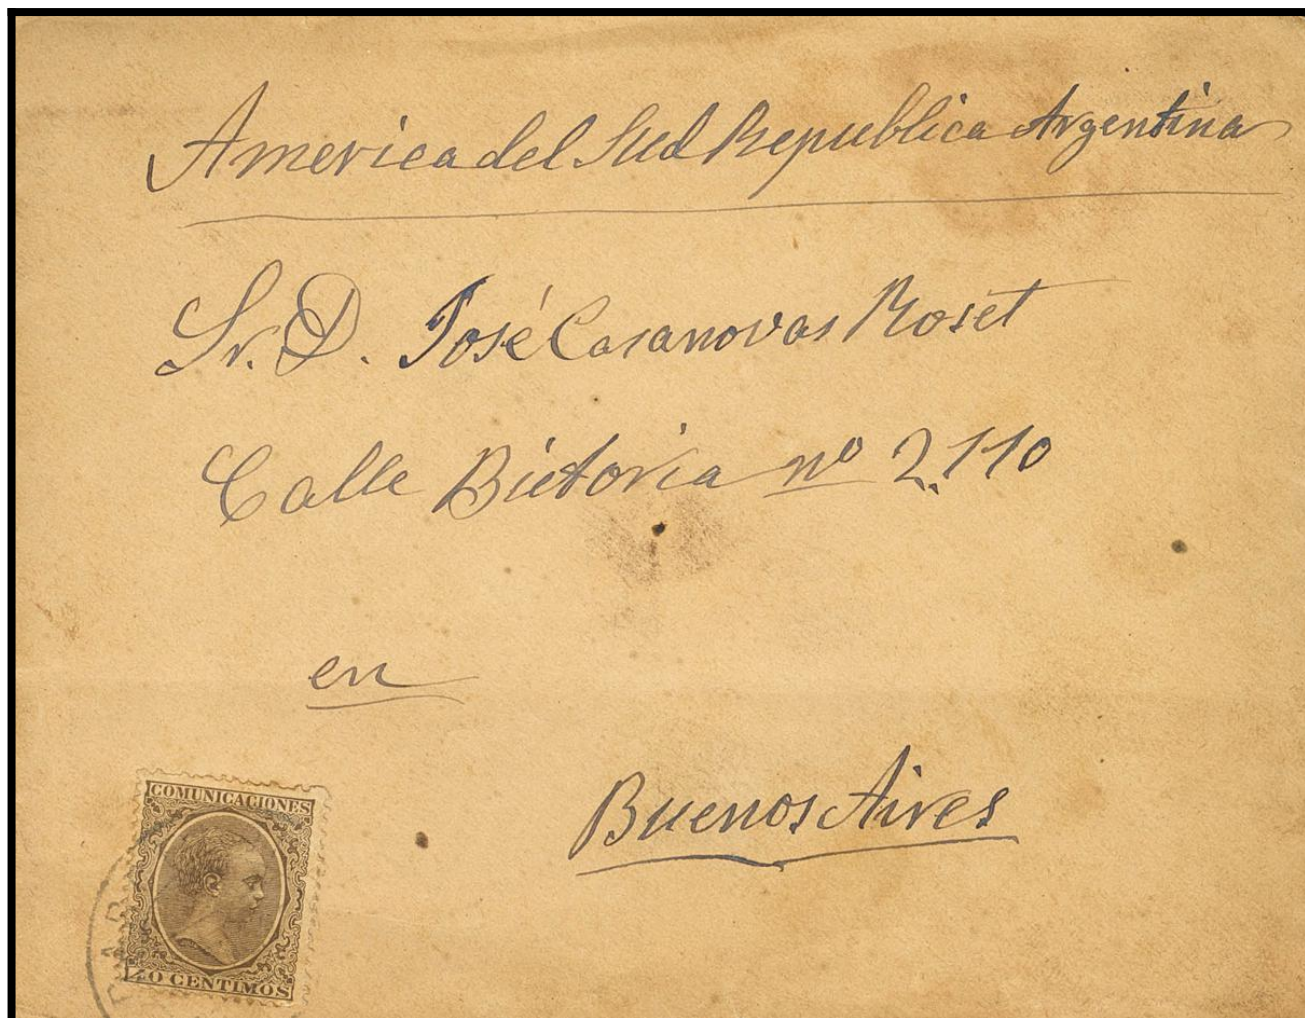 America del Sud Republica Argentina
Sr. D. José Casanovas Roset
Calle Bictoria nº 2.110
en
Buenos Aires
COMUNICACIONES
40 CENTIMOS